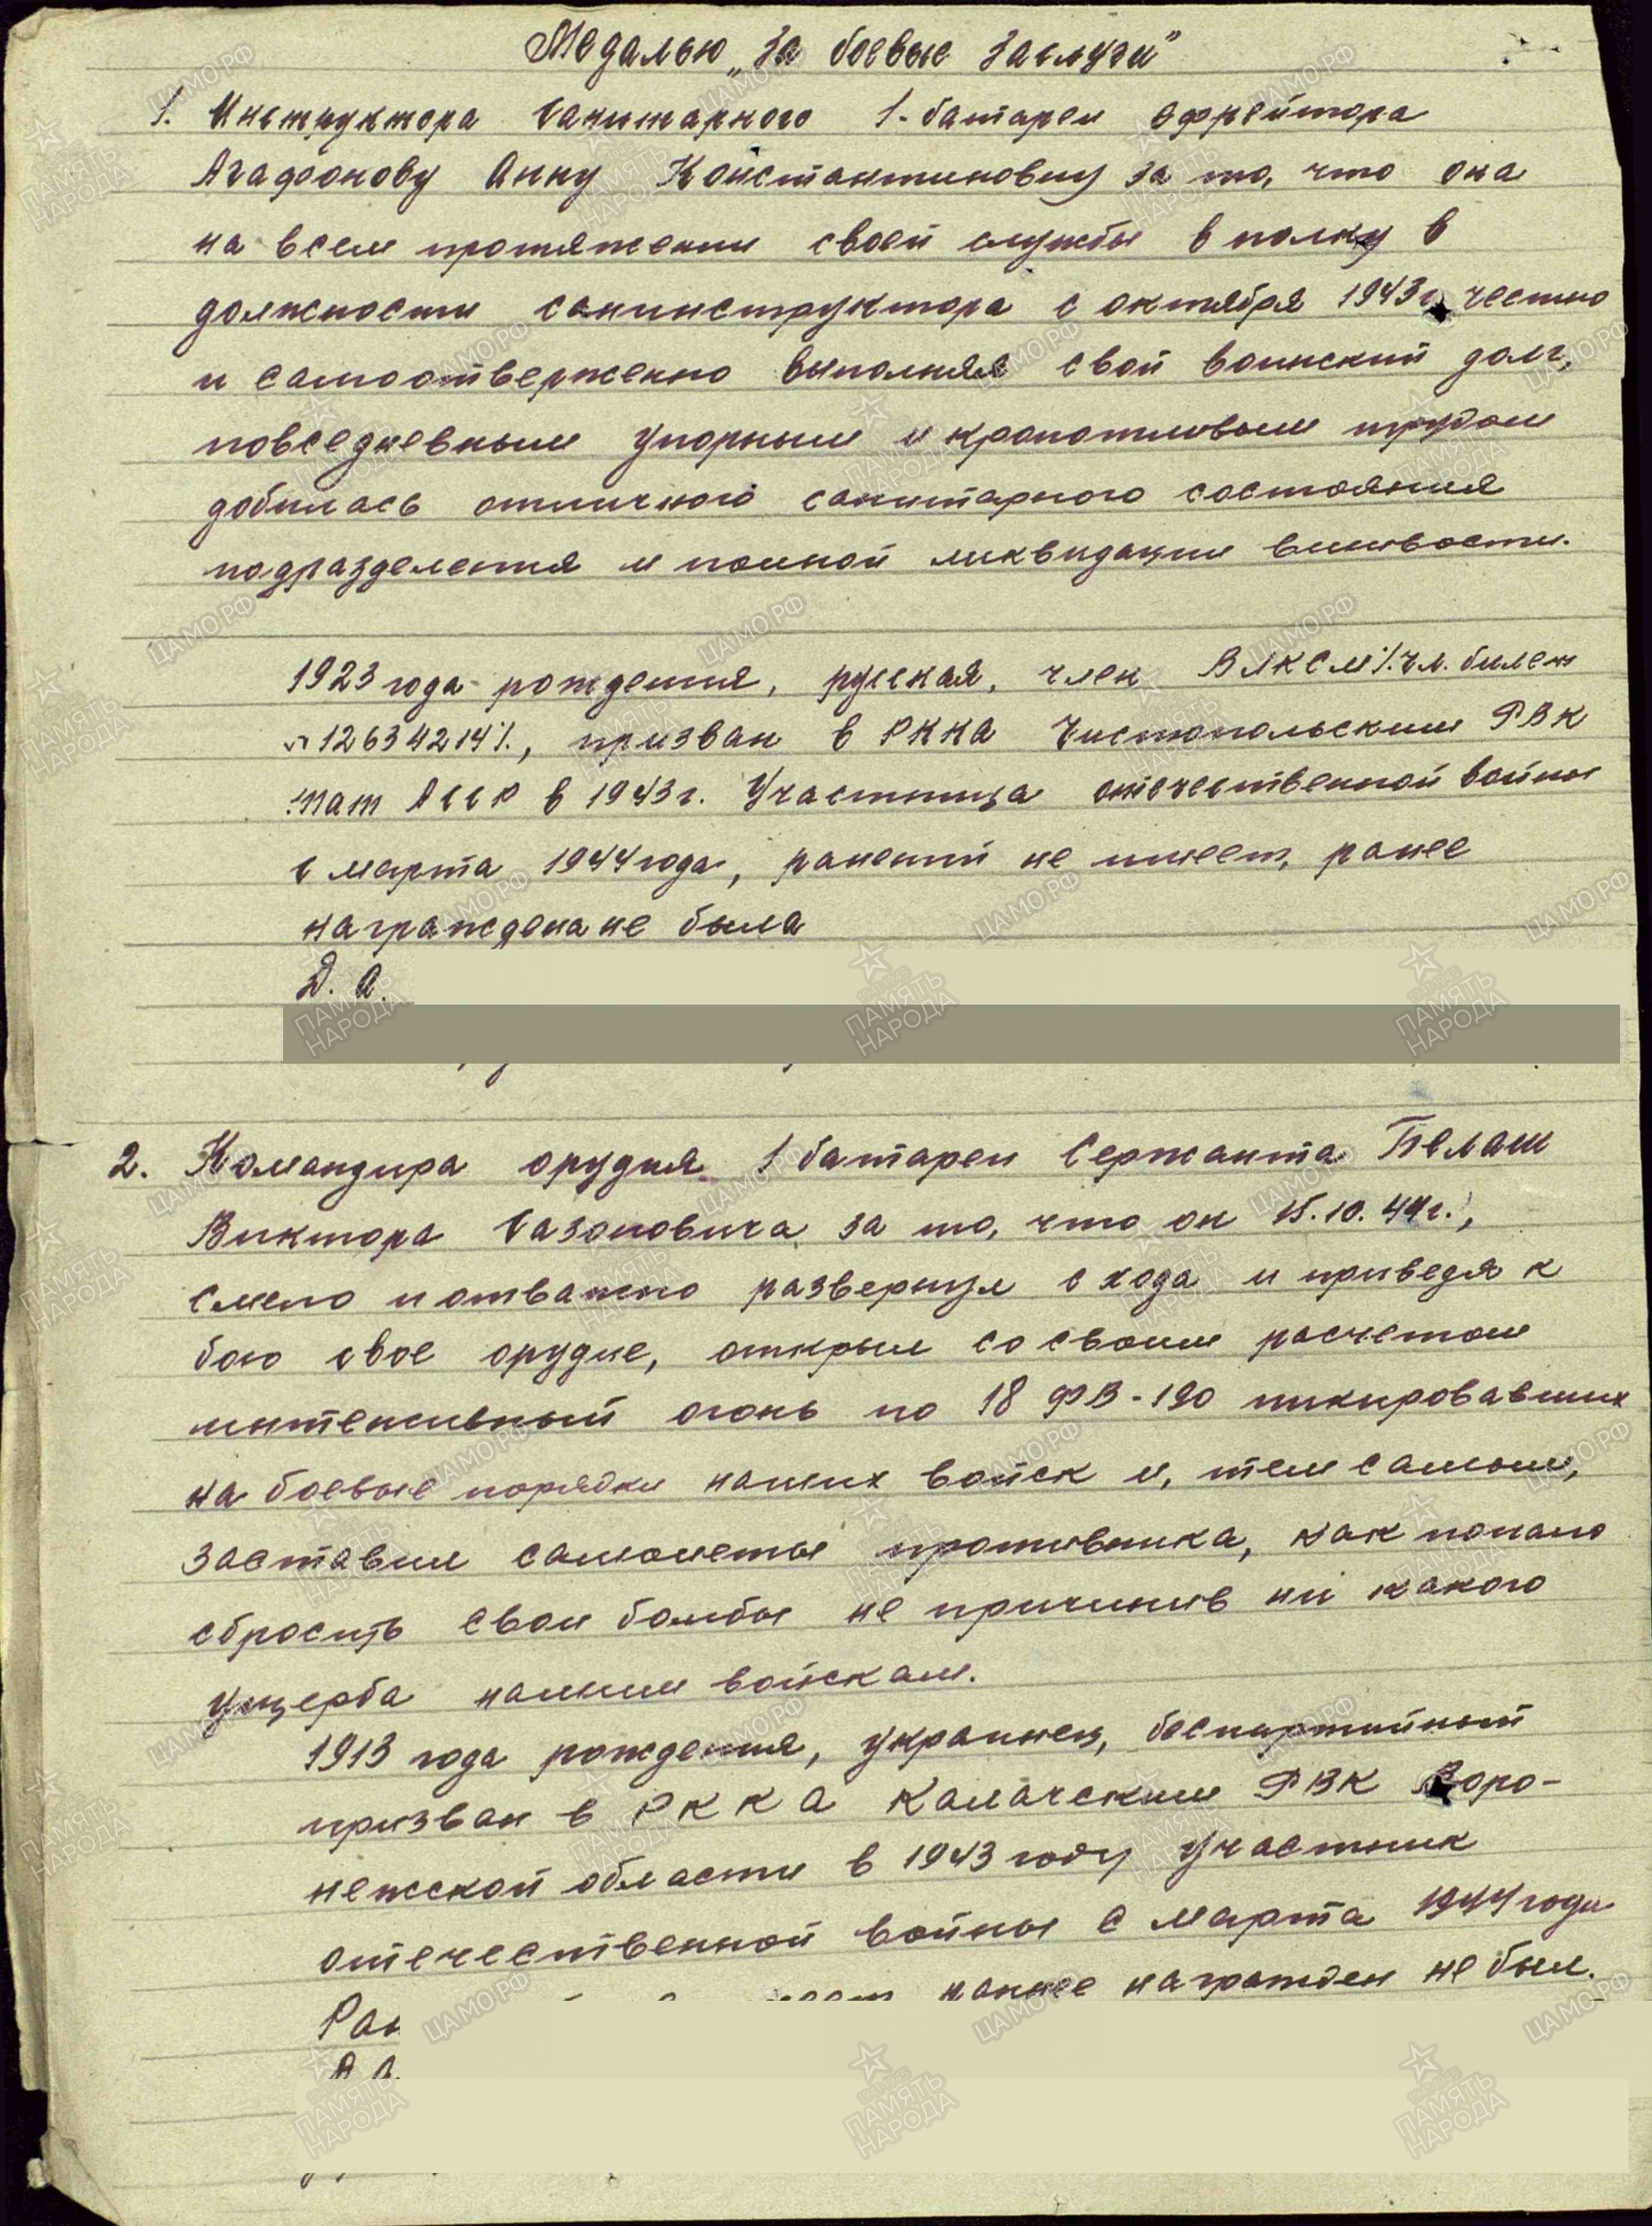 Медалью „За боевые заслуги"
1. Инструктора Санитарного 1-батареи ефрейтора
Агафонову Анну Константиновну за то, что она
на всем протяжении своей службы в полку в
должности санинструктора с октября 1943г. честно
и самоотверженно выполняя свой воинский долг,
повседневным упорным и кропотливым трудом
добилась отличного санитарного состояния
подразделения и полной ликвидации вшивости.
1923 года рождения, русская, член ВЛКСМ /.чл. билет
№12634214/., призван в РККА Чистопольским РВК
Тат АССР в 1943г. Участница отечественной войны
с марта 1944 года, ранений не имеет, ранее
награждена не была
Д. А.
2. Командира орудия 1 батареи Сержанта Пелаш
Виктора Сазоновича за то, что он 15.10.44г.,
смело и отважно развернул с хода и приведя к
бою свое орудие, открыл со своим расчетом
интенсивный огонь по 18 ФВ-190 пикировавших
на боевые порядки наших войск и, тем самым,
заставил самолеты противника, как попало
сбросить свои бомбы не причинив ни какого
ущерба нашим войскам.
1913 года рождения, украинец, беспартийный
призван в РККА Калачским РВК Воро-
нежской области в 1943 году Участник
отечественной войны с марта 1944 года
раннее награжден не был.
ЦАМО.РФ
ПАМЯТЬ НАРОДА